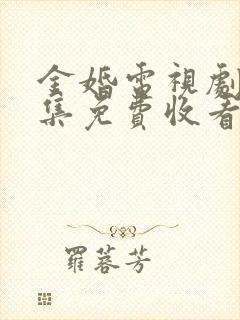 金婚雷視劇
集免費收看
羅蓉芳